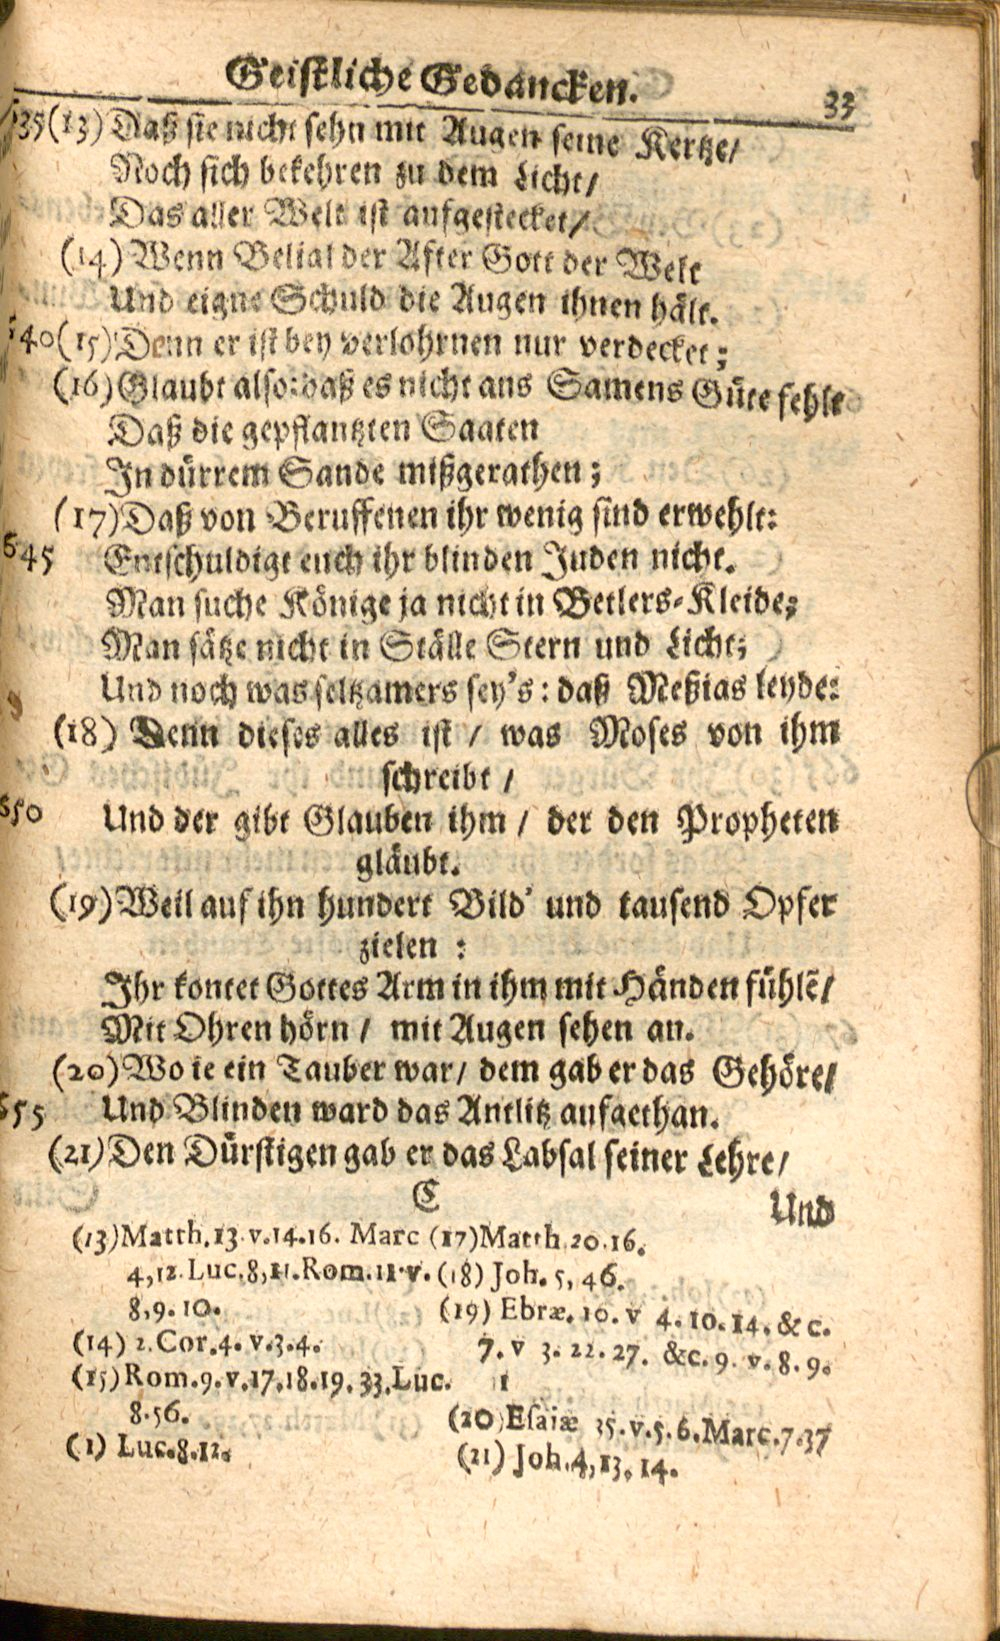 Geistliche Gedancken. 33
535 (13) Daß sie nicht sehn mit Augen seine Kertze/
Noch sich bekehren zu dem Licht/
Das aller Welt ist aufgestecket/
(14) Wenn Belial der After Gott der Welt
Und eigne Schuld die Augen ihnen hält.
540 (15) Denn er ist bey verlohrnen nur verdecket;
(16) Glaubt also: daß es nicht ans Samens Güte fehle
Daß die gepflantzten Saaten
In dürrem Sande mißgerathen;
(17) Daß von Beruffenen ihr wenig sind erwehlt:
545 Entschuldigt euch ihr blinden Juden nicht.
Man suche Könige ja nicht in Betlers-Kleide;
Man sätze nicht in Ställe Stern und Licht;
Und noch was seltzamers sey's: daß Meßias leyde:
(18) Denn dieses alles ist / was Moses von ihm
schreibt /
550 Und der gibt Glauben ihm / der den Propheten
gläubt.
(19) Weil auf ihn hundert Bild' und tausend Opfer
zielen :
Ihr kontet Gottes Arm in ihm mit Händen fühlẽ/
Mit Ohren hörn / mit Augen sehen an.
(20) Wo ie ein Tauber war/ dem gab er das Gehöre/
555 Und Blinden ward das Antlitz aufgethan.
(21) Den Dürstigen gab er das Labsal seiner Lehre/
C Und
(13) Matth. 13. v. 14. 16. Marc
4, 12. Luc. 8, 11. Rom. 11. v.
8, 9. 10.
(14) 2. Cor. 4. v. 3. 4.
(15) Rom. 9. v. 17. 18. 19. 33. Luc.
8. 56.
(1) Luc. 8. 12.
(17) Matth. 20. 16.
(18) Joh. 5, 46.
(19) Ebræ. 10. v 4. 10. 14. &c.
7. v 3. 22. 27. &c. 9. v. 8. 9.
1
(20) Esaiæ 35. v. 5. 6. Marc. 7. 37
(21) Joh. 4, 13, 14.